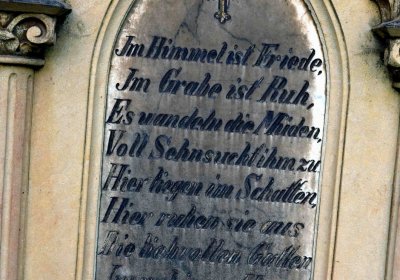 Im Himmel ist Friede,
Im Grabe ist Ruh,
Es wandeln die Müden,
Voll Sehnsucht ihm zu
Hier liegen im Schatten,
Hier ruhen sie aus
Die liebvollen Gatten